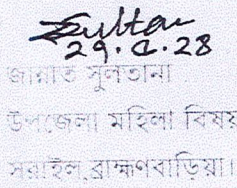 Sultan
29.5.28
জান্নাত সুলতানা
উপজেলা মহিলা বিষয়
সরাইল, ব্রাহ্মণবাড়িয়া।